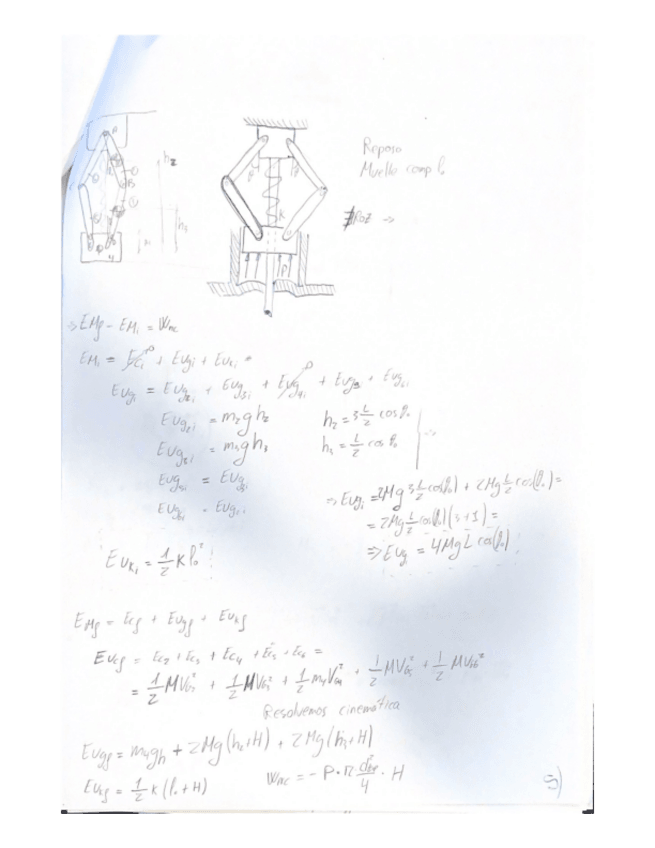 Reposo
Muelle comp l₀
h₂
h₃
K
P
⇒ EMf - EMi = Wnc
EMi = Eci + EUgi + EUki =
EUgi = EUg2i + EUg3i + EUg4i + EUg5i + EUg6i
EUg2i = m₂gh₂ h₂ = 3 L/2 cosβ₀
EUg3i = m₃gh₃ h₃ = L/2 cosβ₀
EUg5i = EUg3i
⇒ EUgi = 2Mg 3 L/2 cos(β₀) + 2Mg L/2 cos(β₀) =
= 2Mg L/2 cos(β₀)(3+1) =
⇒ EUg = 4MgL cos(β₀)
EUki = 1/2 K l₀²
EMf = Ecf + EUgf + EUkf
= 1/2 MVG2² + 1/2 MVG3² + 1/2 m₄VG4² + 1/2 MVG5² + 1/2 MVG6²
Resolvemos cinemática
EUgf = m₄gh + 2Mg(h₂+H) + 2Mg(h₃+H)
EUkf = 1/2 K (l₀+H) Wnc = -P·π· /4 · H
5)